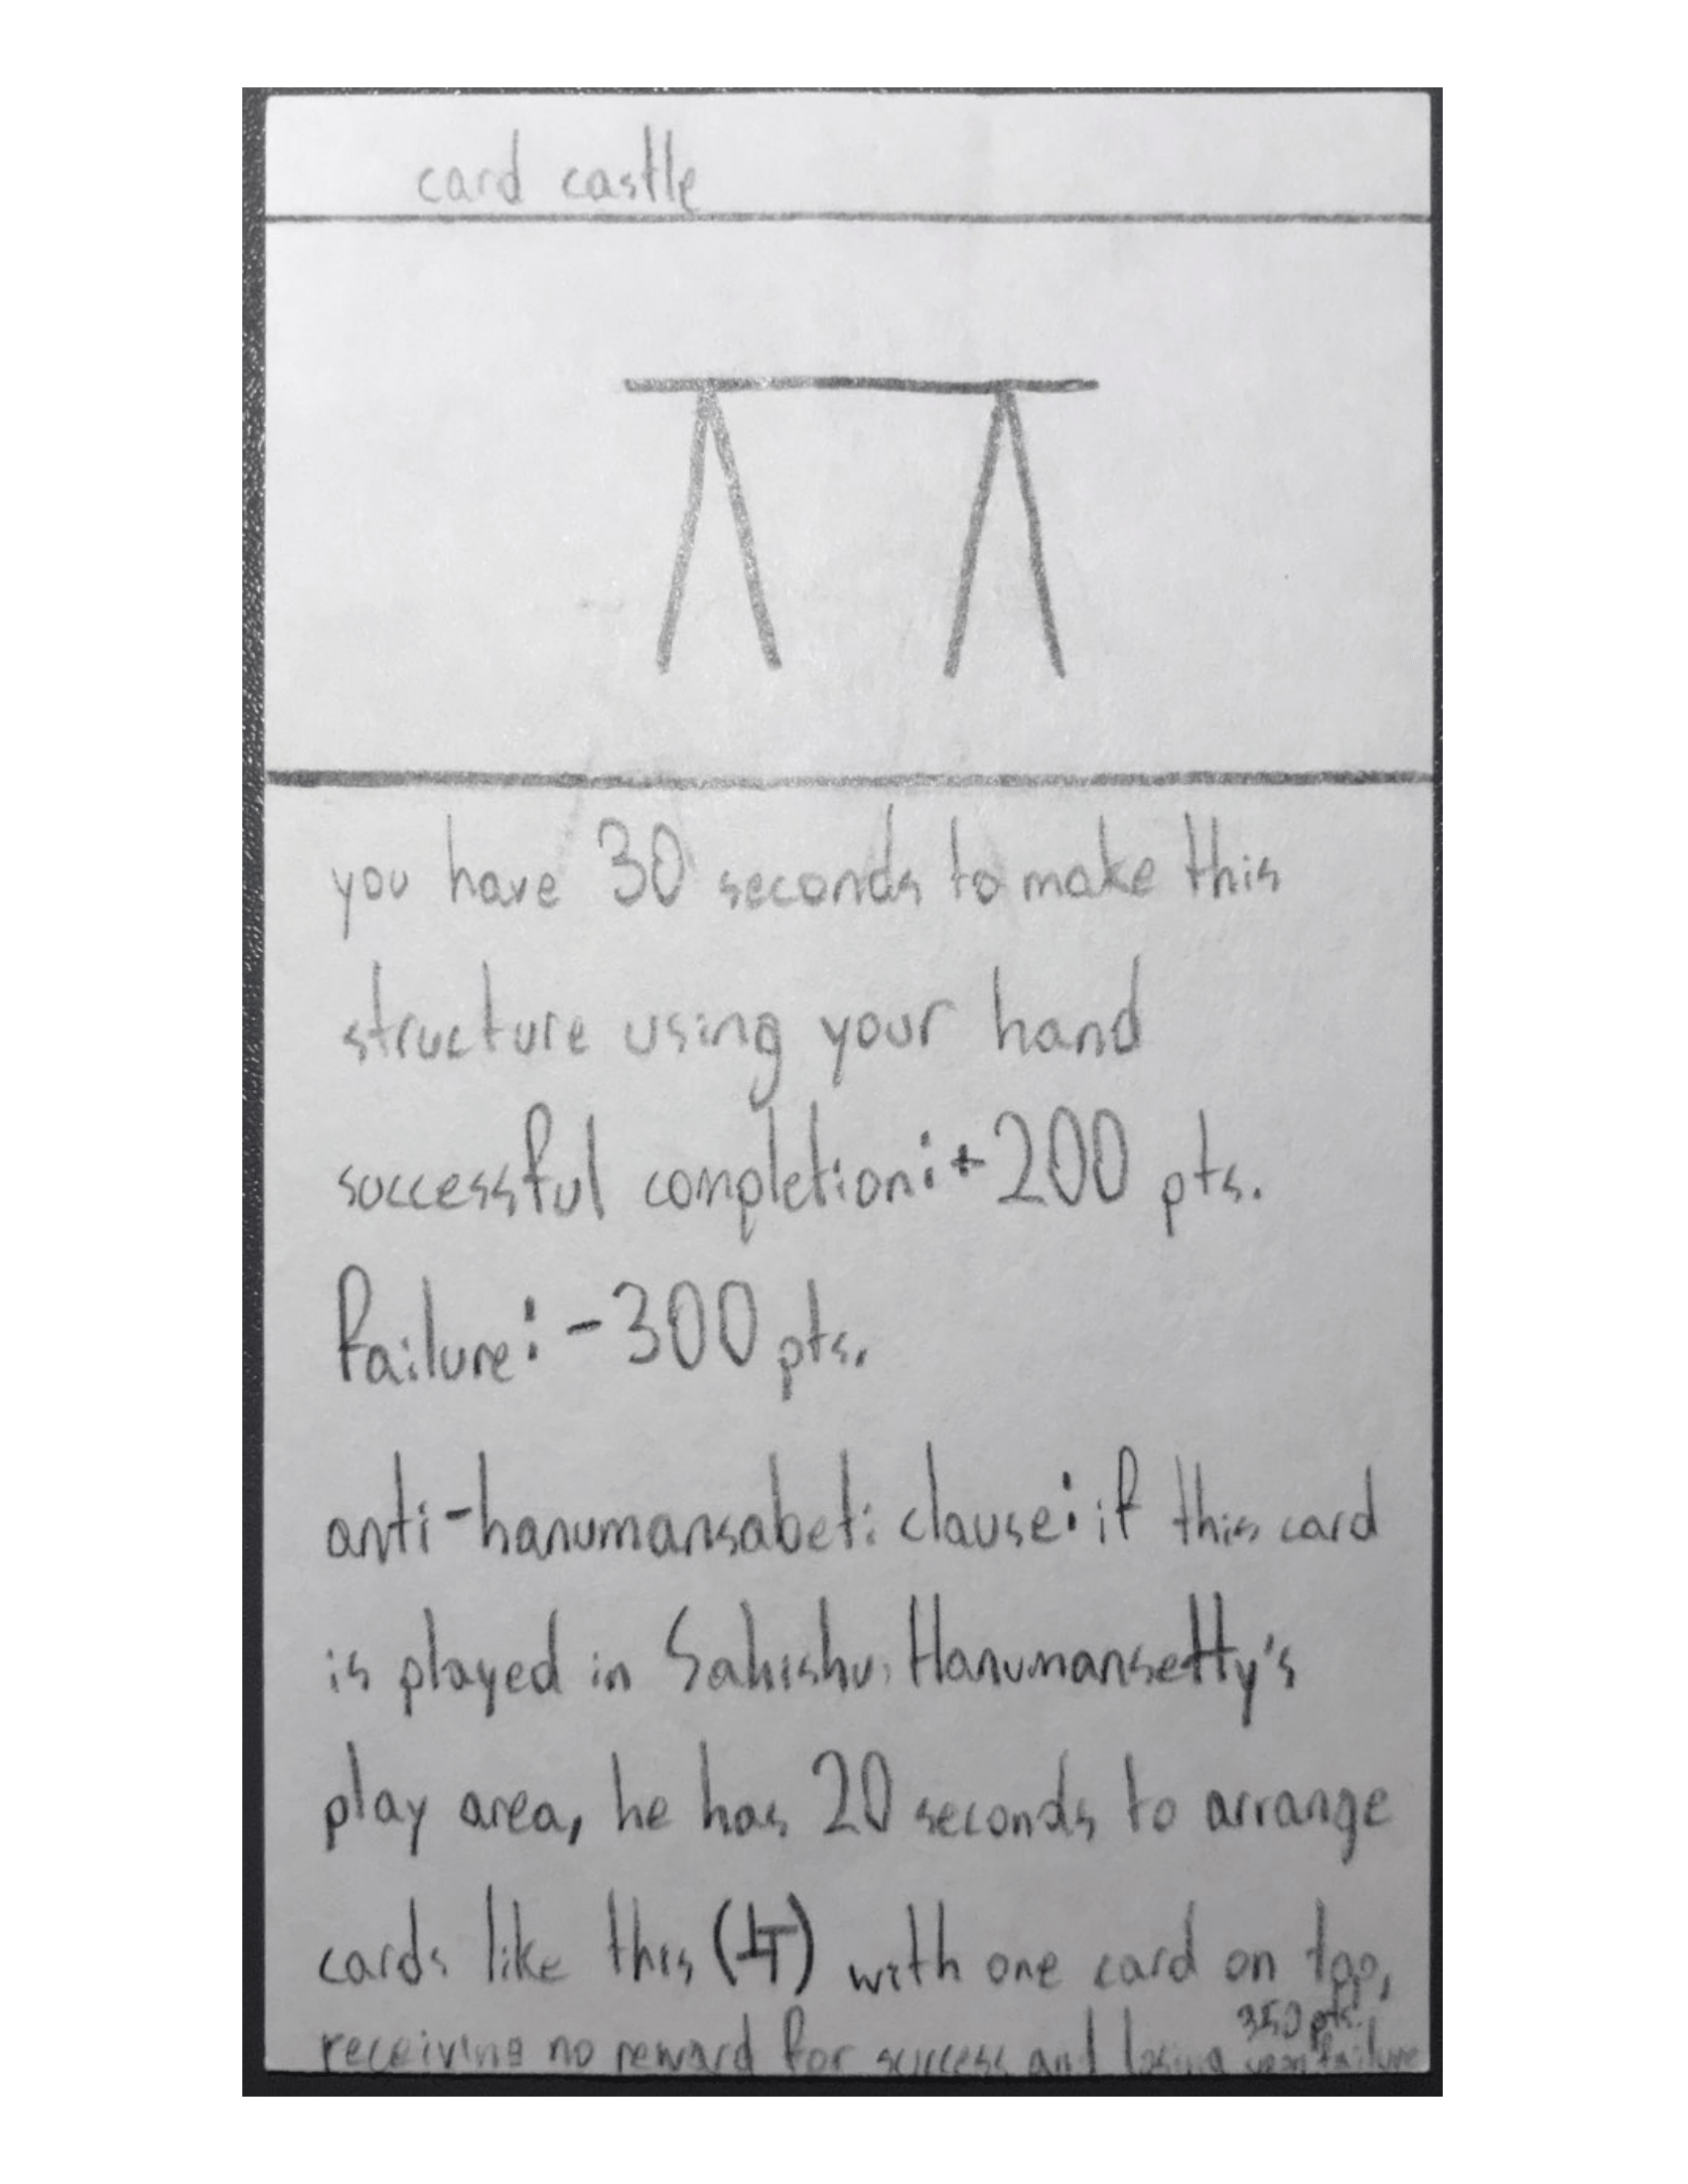 card castle
you have 30 seconds to make this
structure using your hand
successful completion:+200 pts.
failure: -300 pts.
anti-hanumansabeti clause: if this card
is played in Sahishu Hanumansetty's
play area, he has 20 seconds to arrange
cards like this () with one card on top,
350 pts.
receiving no reward for success and losing upon failure